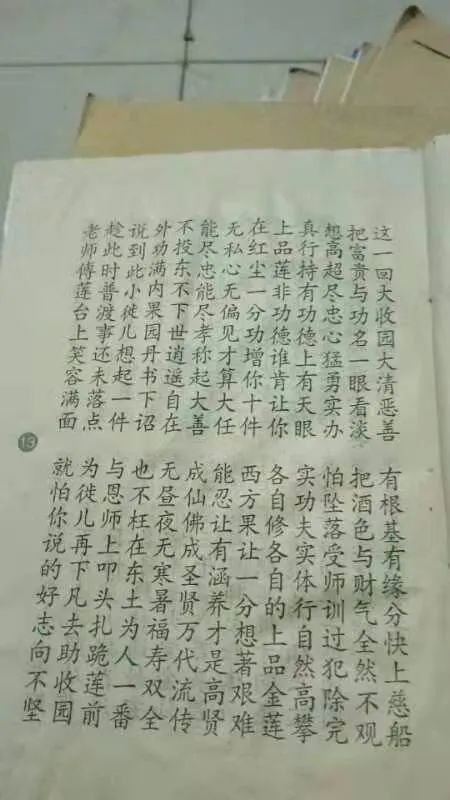 这一回大收园大清恶善
有根基有缘分快上慈船
把富贵与功名一眼看淡
把酒色与财气全然不观
想高超尽忠心猛勇实办
怕坠落受师训过犯除完
真行持有功德上有天眼
实功夫实体行自然高攀
上品莲非功德谁肯让你
各自修各自的上品金莲
在红尘一分功增你十件
西方果让一分想著艰难
无私心无偏见才算大任
能忍让有涵养才是高贤
能尽忠能尽孝称起大善
成仙佛成圣贤万代流传
不投东不下世逍遥自在
无昼夜无寒暑福寿双全
外功满内果园丹书下诏
也不枉在东土为人一番
说到此小徒儿想起一件
与恩师上叩头扎跪莲前
趁此时普渡事还未落点
为徒儿再下凡去助收园
老师傅莲台上笑容满面
就怕你说的好志向不坚
13